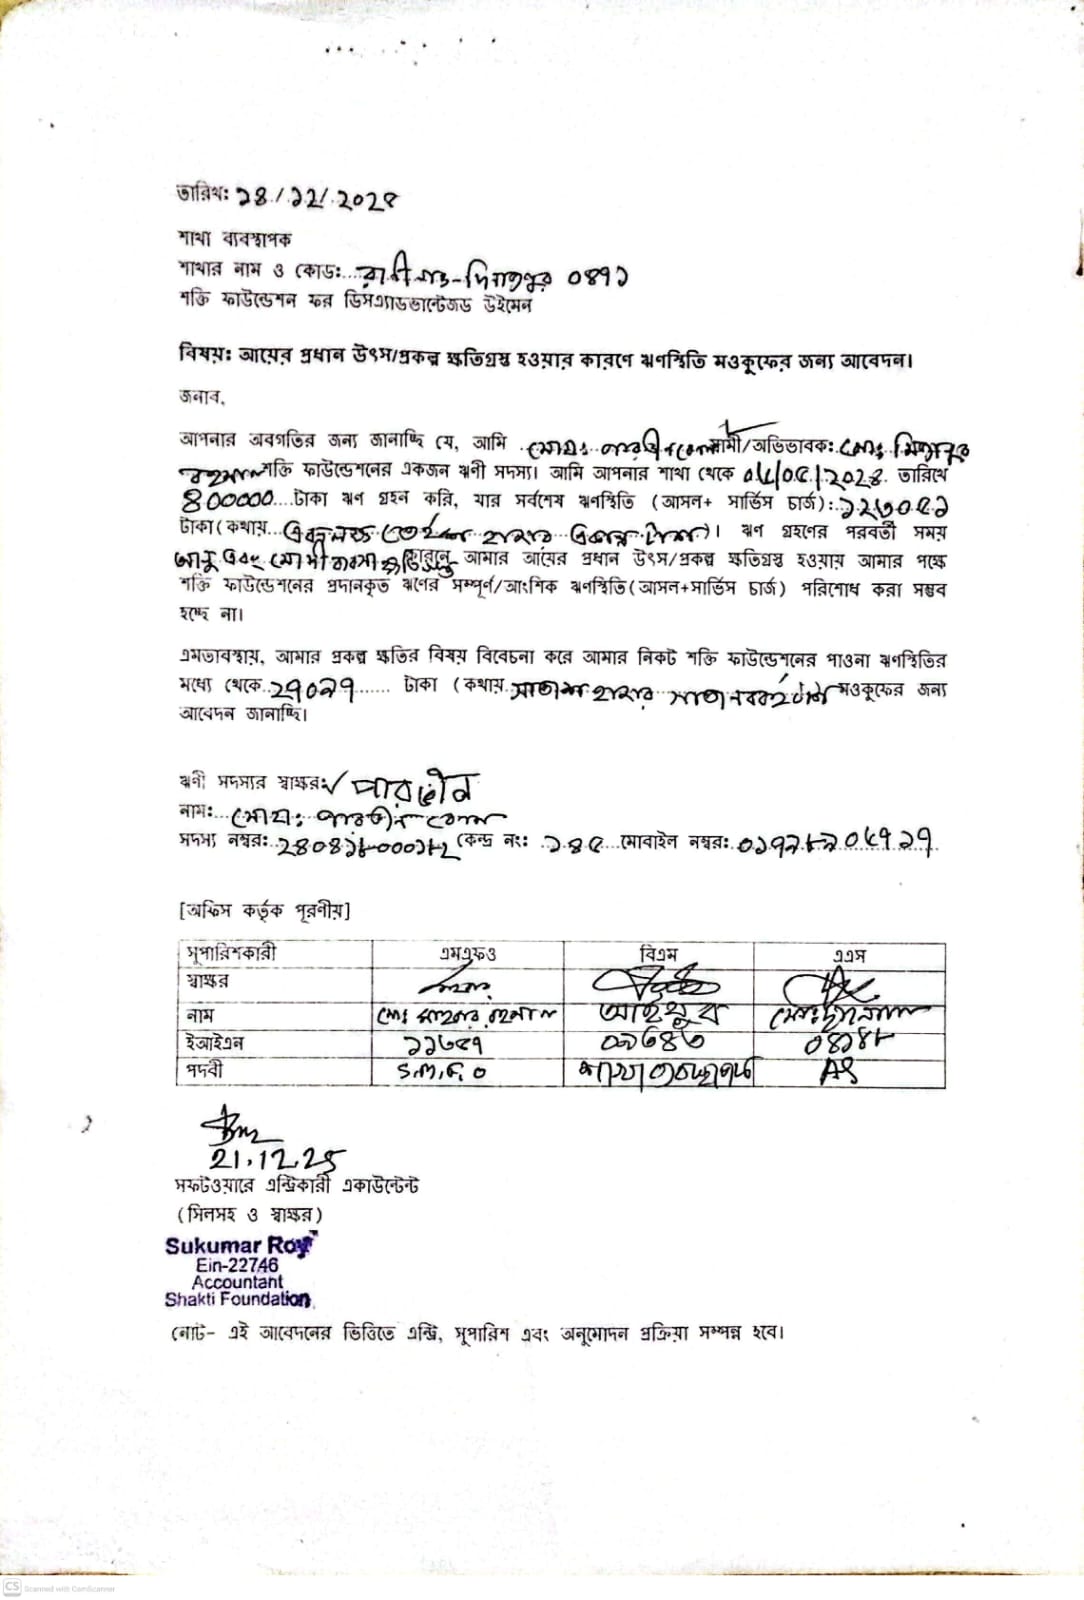 তারিখ: ১৪/১২/২০২৫
শাখা ব্যবস্থাপক
শাখার নাম ও কোড: রাণীগঞ্জ-দিনাজপুর ০৪৭১
শক্তি ফাউন্ডেশন ফর ডিসএ্যাডভান্টেজড উইমেন
বিষয়: আয়ের প্রধান উৎস/প্রকল্প ক্ষতিগ্রস্ত হওয়ার কারণে ঋণস্থিতি মওকুফের জন্য আবেদন।
জনাব,
আপনার অবগতির জন্য জানাচ্ছি যে, আমি মোছা: পারভীন বেগম স্বামী/অভিভাবক: মো:
রহমান শক্তি ফাউন্ডেশনের একজন ঋণী সদস্য। আমি আপনার শাখা থেকে তারিখে
৪০০০০০ টাকা ঋণ গ্রহন করি, যার সর্বশেষ ঋণস্থিতি (আসল+ সার্ভিস চার্জ):
টাকা (কথায় একলক্ষ হাজার একান্ন টাকা)। ঋণ গ্রহণের পরবর্তী সময়
আলু এবং কারনে আমার আয়ের প্রধান উৎস/প্রকল্প ক্ষতিগ্রস্ত হওয়ায় আমার পক্ষে
শক্তি ফাউন্ডেশনের প্রদানকৃত ঋণের সম্পূর্ণ/আংশিক ঋণস্থিতি (আসল+সার্ভিস চার্জ) পরিশোধ করা সম্ভব
হচ্ছে না।
এমতাবস্থায়, আমার প্রকল্প ক্ষতির বিষয় বিবেচনা করে আমার নিকট শক্তি ফাউন্ডেশনের পাওনা ঋণস্থিতির
মধ্যে থেকে ২৭০৯৭ টাকা (কথায় সাতাশ হাজার সাতানব্বই টাকা মওকুফের জন্য
আবেদন জানাচ্ছি।
ঋণী সদস্যর স্বাক্ষর: পারভীন
নাম: মোছা: পারভীন বেগম
সদস্য নম্বর: কেন্দ্র নং: ১৪৫ মোবাইল নম্বর:
[অফিস কর্তৃক পূরণীয়]
সুপারিশকারী এমএফও বিএম এএস
স্বাক্ষর
নাম মো: রহমান আইয়ুব মো:
ইআইএন ১১৬৫৭ ০৯৬৪৬ ০৪১৪৮
পদবী S.M.F.O শাখা ব্যবস্থাপক AS
21.12.25
সফটওয়ারে এন্ট্রিকারী একাউন্টেন্ট
(সিলসহ ও স্বাক্ষর)
Sukumar Roy
Ein-22746
Accountant
Shakti Foundation
নোট- এই আবেদনের ভিত্তিতে এন্ট্রি, সুপারিশ এবং অনুমোদন প্রক্রিয়া সম্পন্ন হবে।
CS Scanned with CamScanner